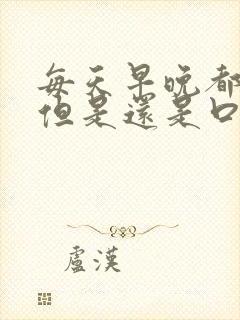 每天早晚都
但是還是口
盧漢